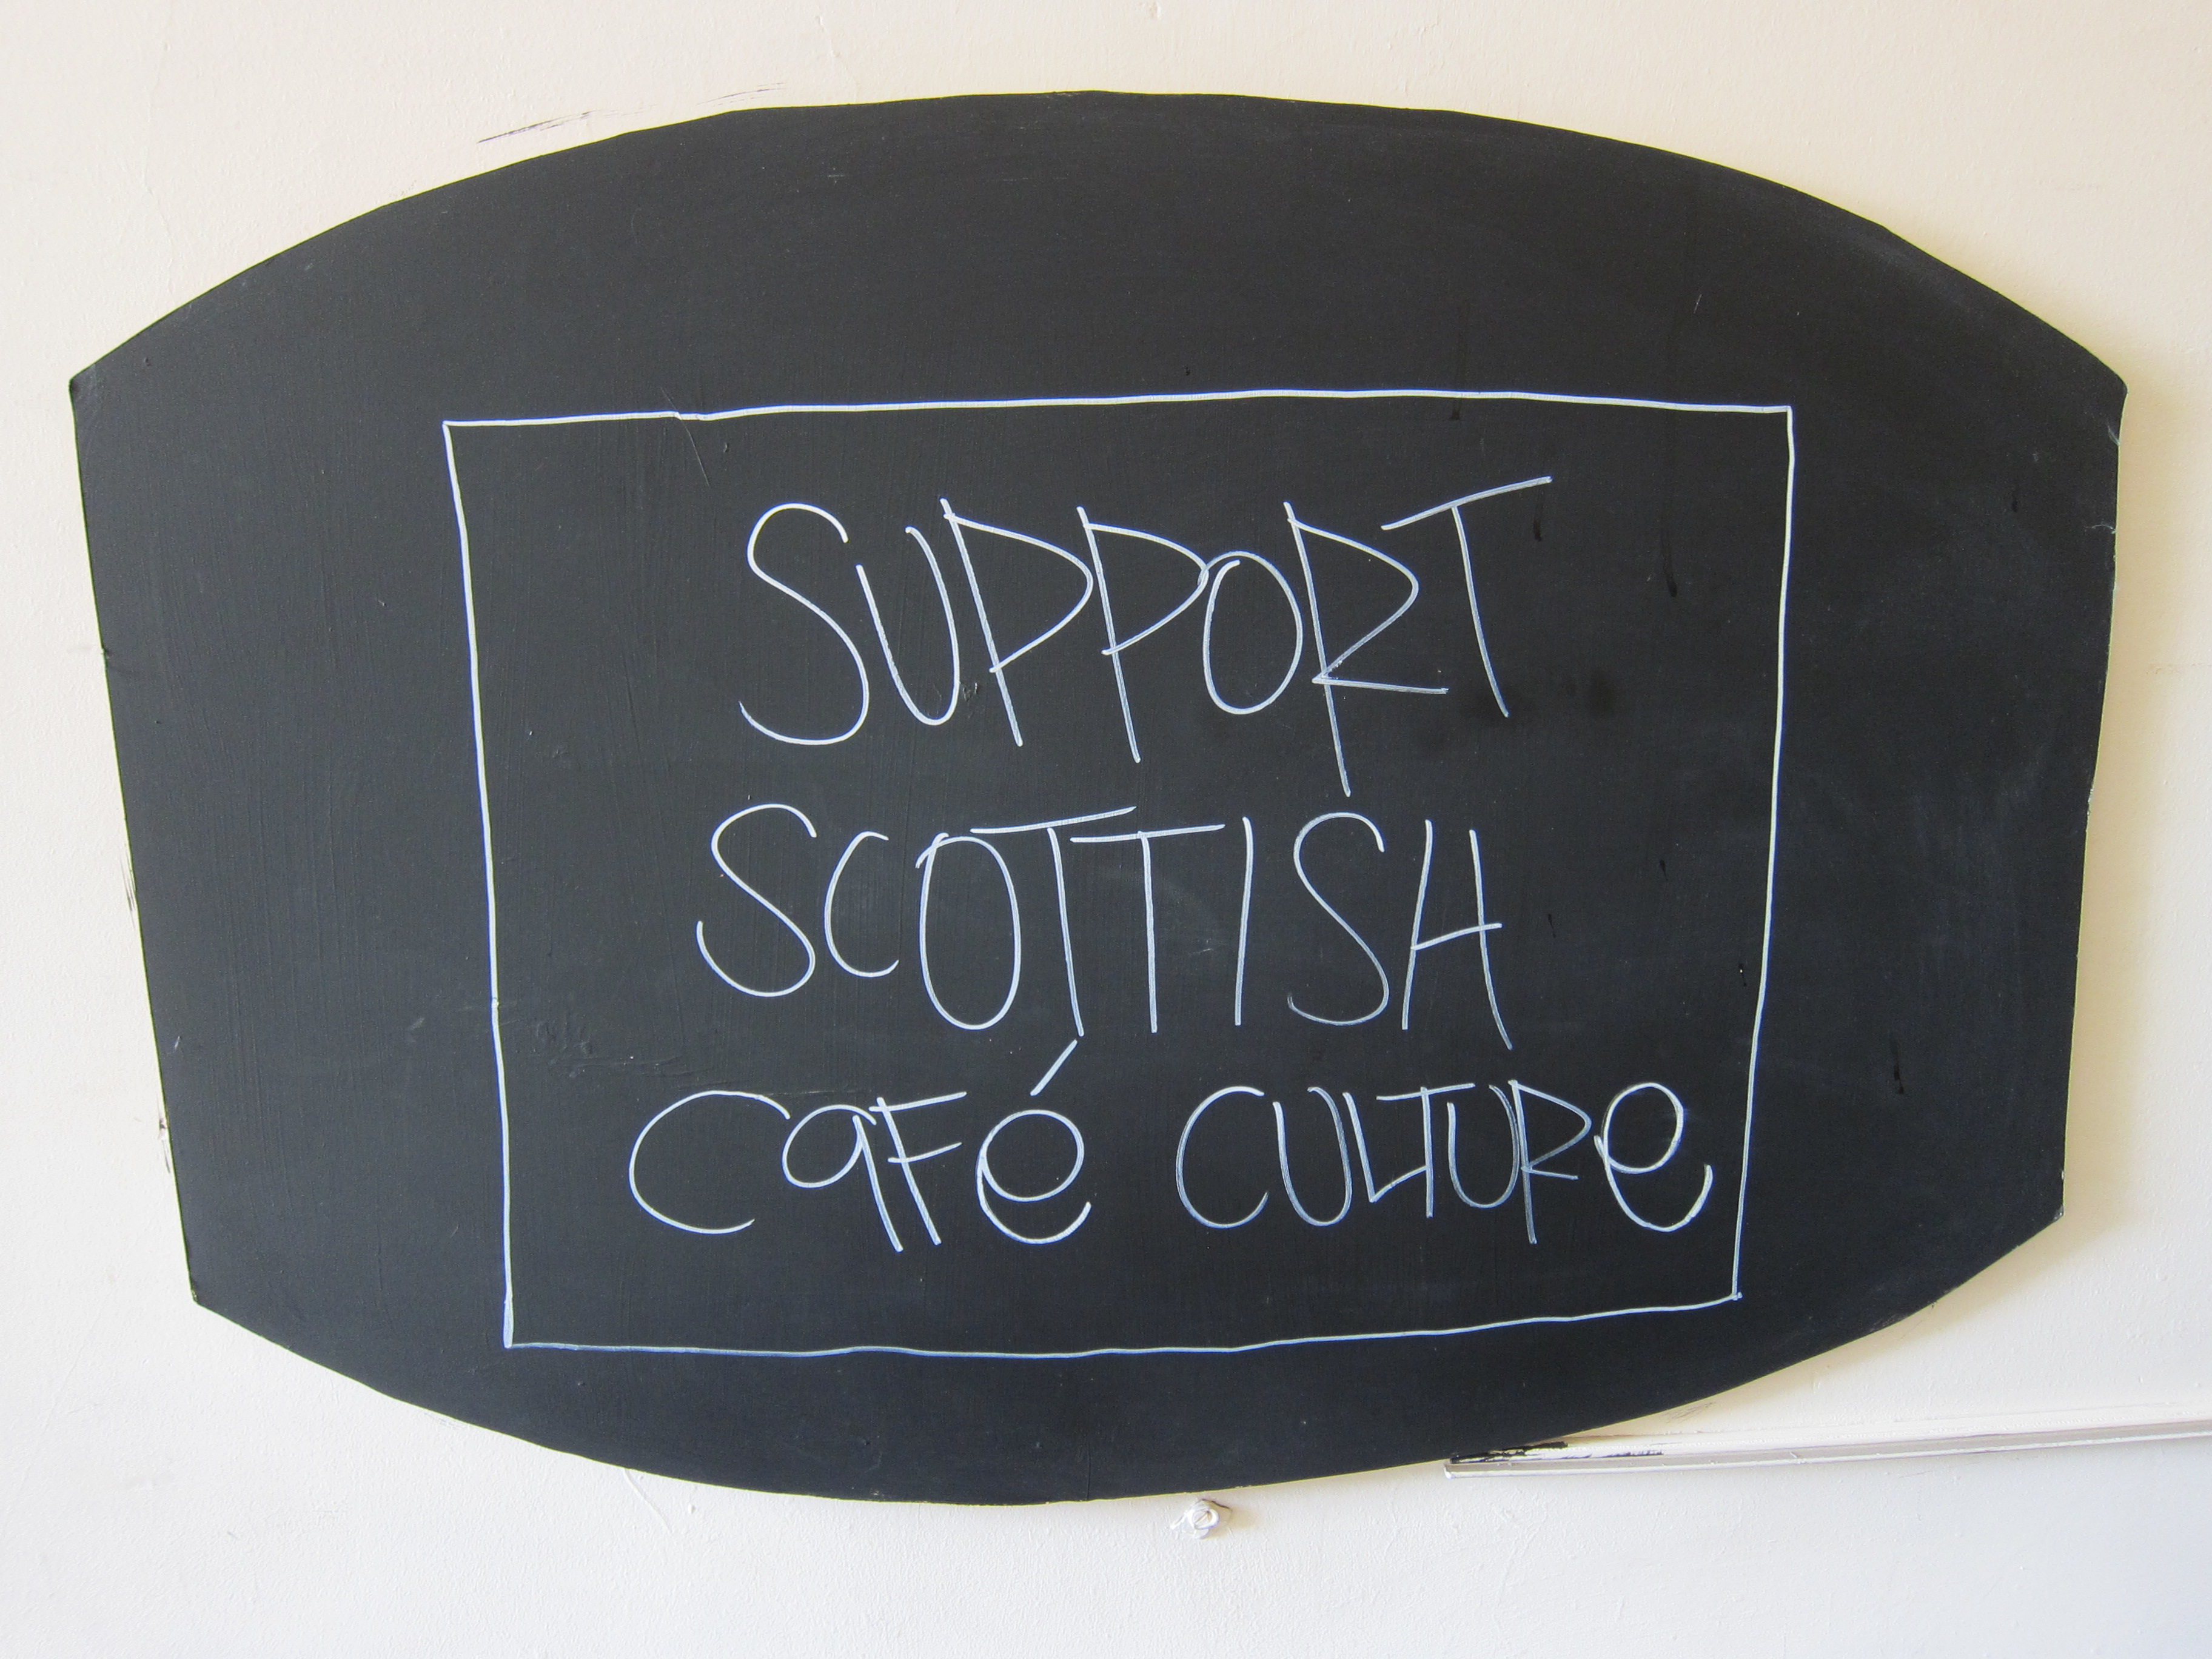 SUPPORT
SCOTTISH
CaFé CULTURe